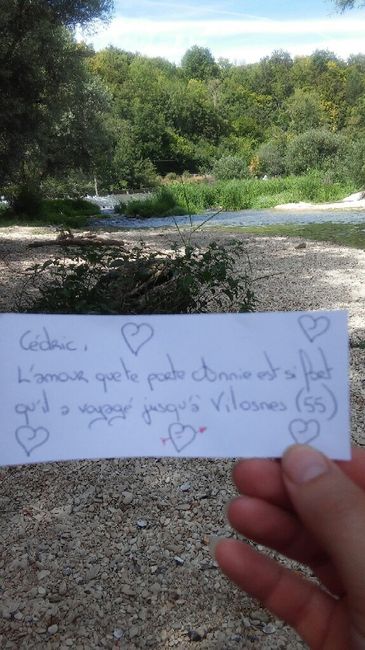 Cédric,
L'amour que te porte Annie est si fort
qu'il a voyagé jusqu'à Vilosnes (55)